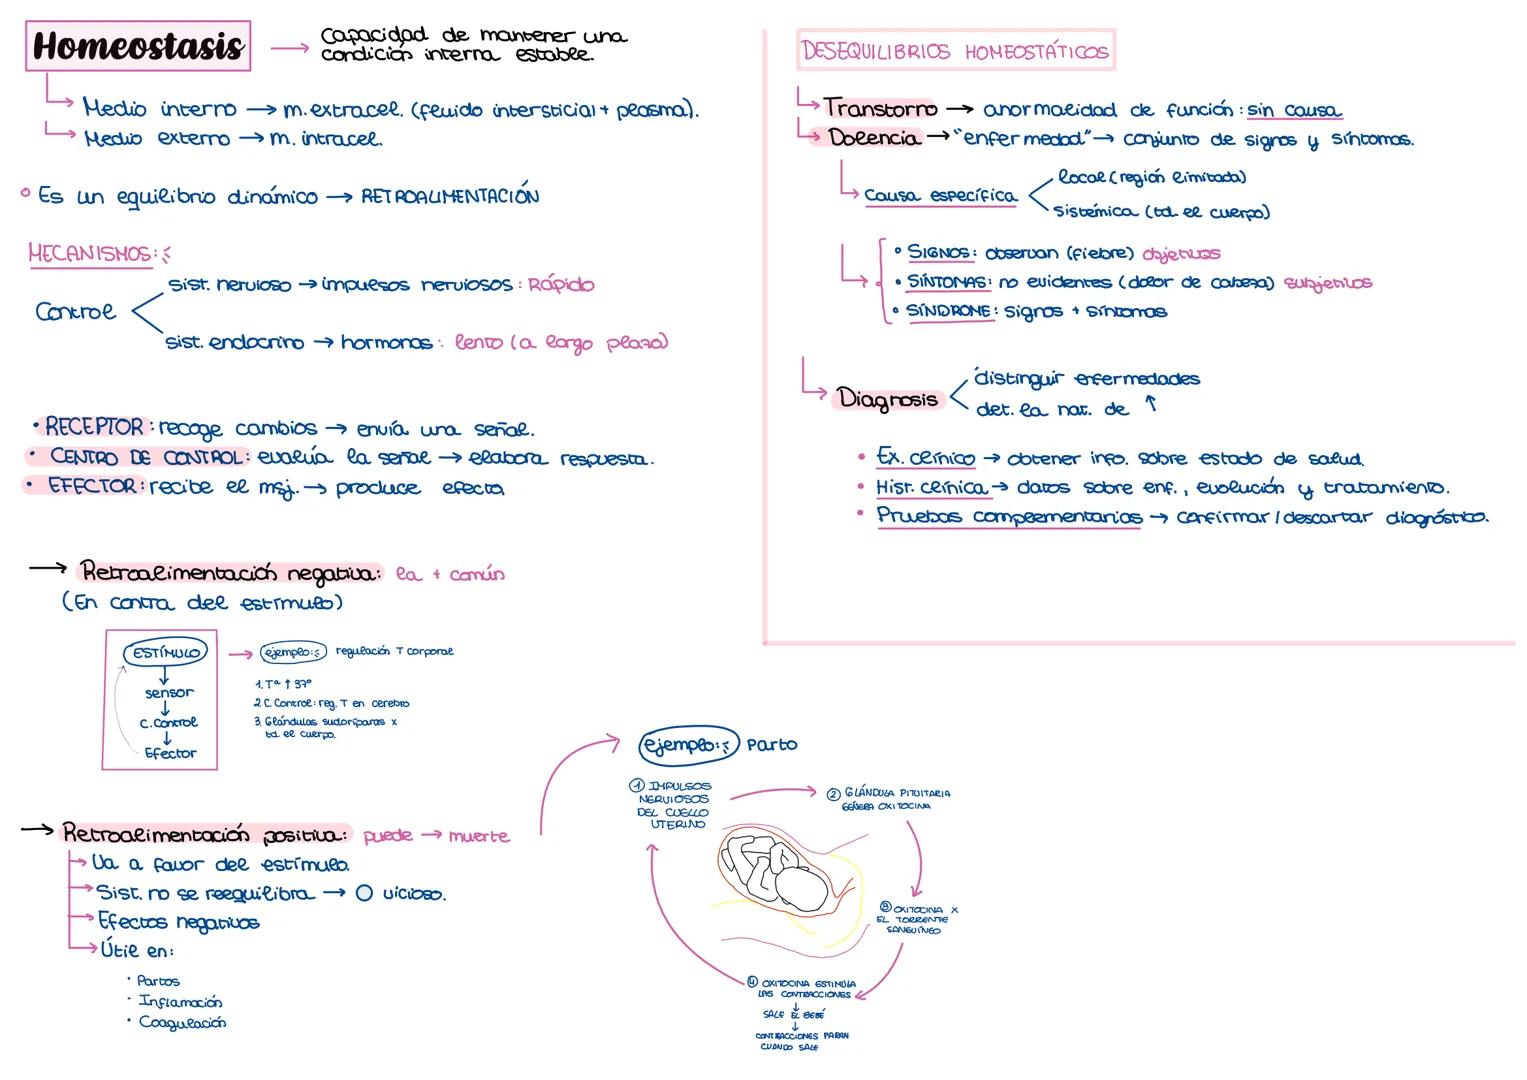 Homeostasis → Capacidad de mantener una
condición interna estable.
Medio interno → m.extracel. (fluido intersticial + plasma).
Medio externo → m. intracel.
Es un equilibrio dinámico → RETROALIMENTACIÓN
MECANISMOS:
Control
sist. nervioso → impulsos nerviosos: Rápido
sist. endocrino → hormonas: lento (a largo plazo)
• RECEPTOR: recoge cambios → envía una señal.
• CENTRO DE CONTROL: evalúa la señal → elabora respuesta.
• EFECTOR: recibe el msj. → produce efecto
→ Retroalimentación negativa: la + común
(En contra del estímulo)
ESTÍMULO
sensor
C. Control
Efector
→ ejemplo: regulación T corporal
1. Tª ↑ 37º
2. C. Control: reg. T en cerebro
3. Glándulas sudoríparas x
td. el cuerpo.
→ Retroalimentación positiva: puede → muerte
Va a favor del estímulo.
Sist. no se reequilibra → O vicioso.
Efectos negativos
Útil en:
• Partos
• Inflamación
• Coagulación
ejemplo: Parto
① IMPULSOS
NERVIOSOS
DEL CUELLO
UTERINO
② GLÁNDULA PITUITARIA
GENERA OXITOCINA
③ OXITOCINA X
EL TORRENTE
SANGUÍNEO
④ OXITOCINA ESTIMULA
LAS CONTRACCIONES
↓
SALE EL BEBÉ
↓
CONTRACCIONES PARAN
CUANDO SALE
DESEQUILIBRIOS HOMEOSTÁTICOS
Transtorno → anormalidad de función: sin causa
Dolencia → "enfermedad" → conjunto de signos y síntomas.
Causa específica
local (región limitada)
sistémica (td. el cuerpo)
• SIGNOS: observan (fiebre) objetivos
• SÍNTOMAS: no evidentes (dolor de cabeza) subjetivos
• SÍNDROME: signos + síntomas
Diagnosis
distinguir enfermedades
det. la nat. de ↑
• Ex. clínico → obtener info. sobre estado de salud.
• Hist. clínica → datos sobre enf., evolución y tratamiento.
• Pruebas complementarias → confirmar / descartar diagnóstico.